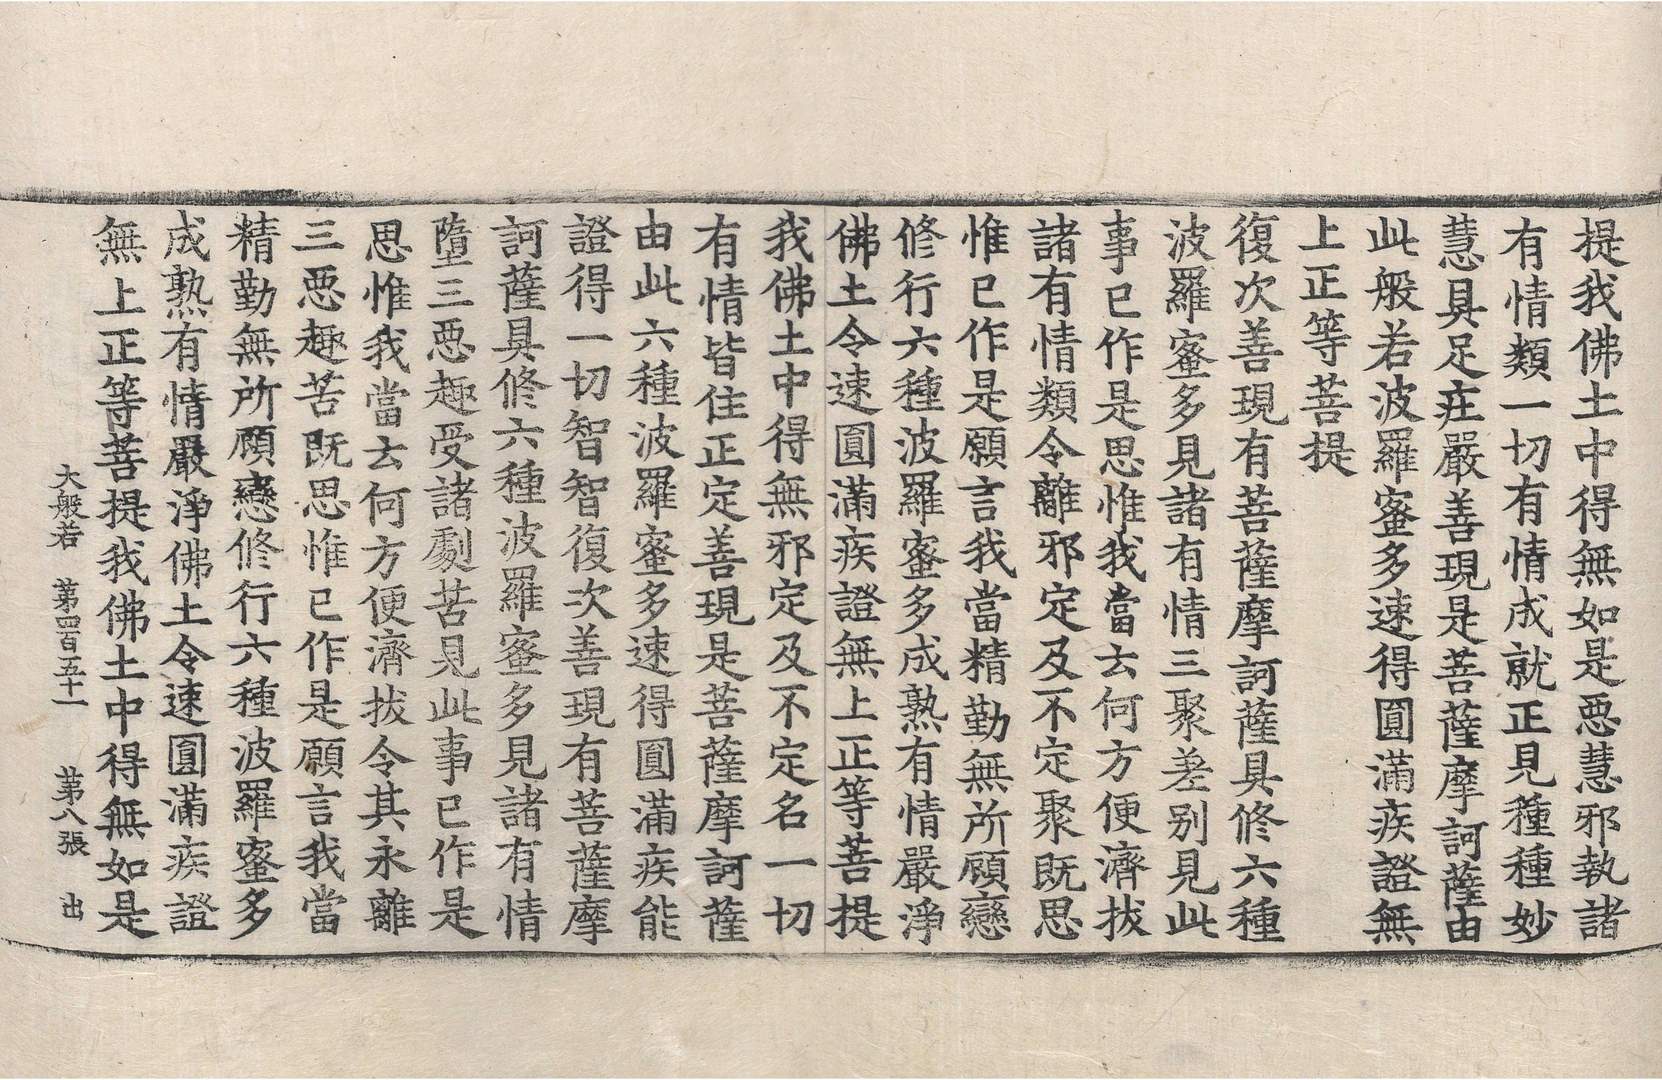 提我佛土中得無如是惡慧邪執諸
有情類一切有情成就正見種種妙
慧具足莊嚴善現是菩薩摩訶薩由
此般若波羅蜜多速得圓滿疾證無
上正等菩提
復次善現有菩薩摩訶薩具修六種
波羅蜜多見諸有情三聚差別見此
事已作是思惟我當云何方便濟拔
諸有情類令離邪定及不定聚既思
惟已作是願言我當精勤無所顧戀
修行六種波羅蜜多成熟有情嚴淨
佛土令速圓滿疾證無上正等菩提
我佛土中得無邪定及不定名一切
有情皆住正定善現是菩薩摩訶薩
由此六種波羅蜜多速得圓滿疾能
證得一切智智復次善現有菩薩摩
訶薩具修六種波羅蜜多見諸有情
墮三惡趣受諸劇苦見此事已作是
思惟我當云何方便濟拔令其永離
三惡趣苦既思惟已作是願言我當
精勤無所顧戀修行六種波羅蜜多
成熟有情嚴淨佛土令速圓滿疾證
無上正等菩提我佛土中得無如是
大般若 第四百五十一 第八張 出